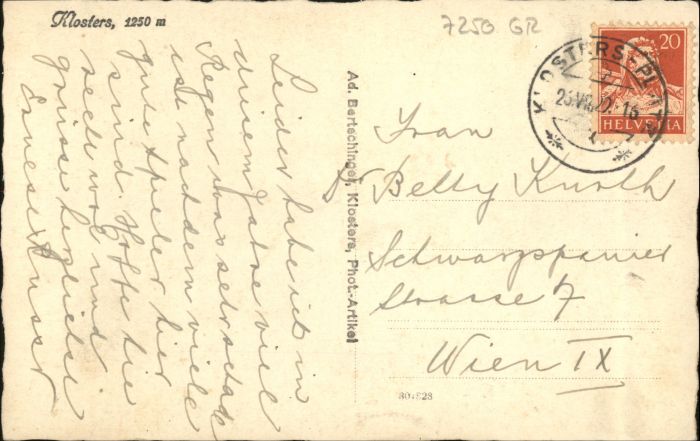 Klosters, 1250 m
7250 GR
KLOSTERS-PL
25.VII.22.-16
20
HELVETIA
Leider habe ich in
diesem Jahre viel
Regen was sehr schade
ist nachdem viele
gute Spieler hier
sind. Hoffe Sie
sind wohl und
grüsse herzlichst
Ernest
Ad. Bertschinger, Klosters, Phot.-Artikel
Frau
Dr Betty Kurth
Schwarzspanier
Strasse 7
Wien IX